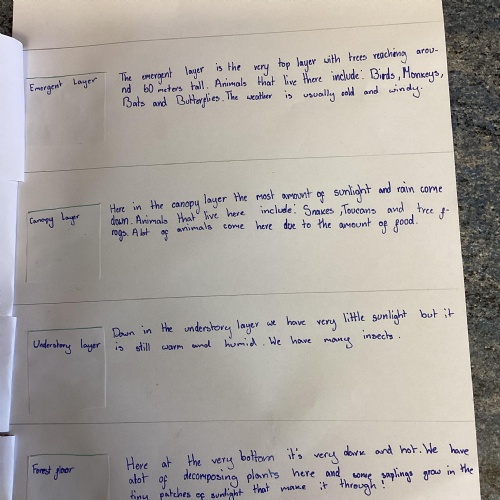 Emergent Layer
The emergent layer is the very top layer with trees reaching arou-
nd 60 meters tall. Animals that live there include: Birds, Monkeys,
Bats and Butterflies. The weather is usually cold and windy.
Canopy layer
Here in the canopy layer the most amount of sunlight and rain come
down. Animals that live here include: Snakes, Toucans and tree f-
rogs. A lot of animals come here due to the amount of food.
Understory layer
Down in the understory layer we have very little sunlight but it
is still warm and humid. We have many insects.
Forest floor
Here at the very bottom it's very dark and hot. We have
alot of decomposing plants here and some saplings grow in the
tiny patches of sunlight that make it through!